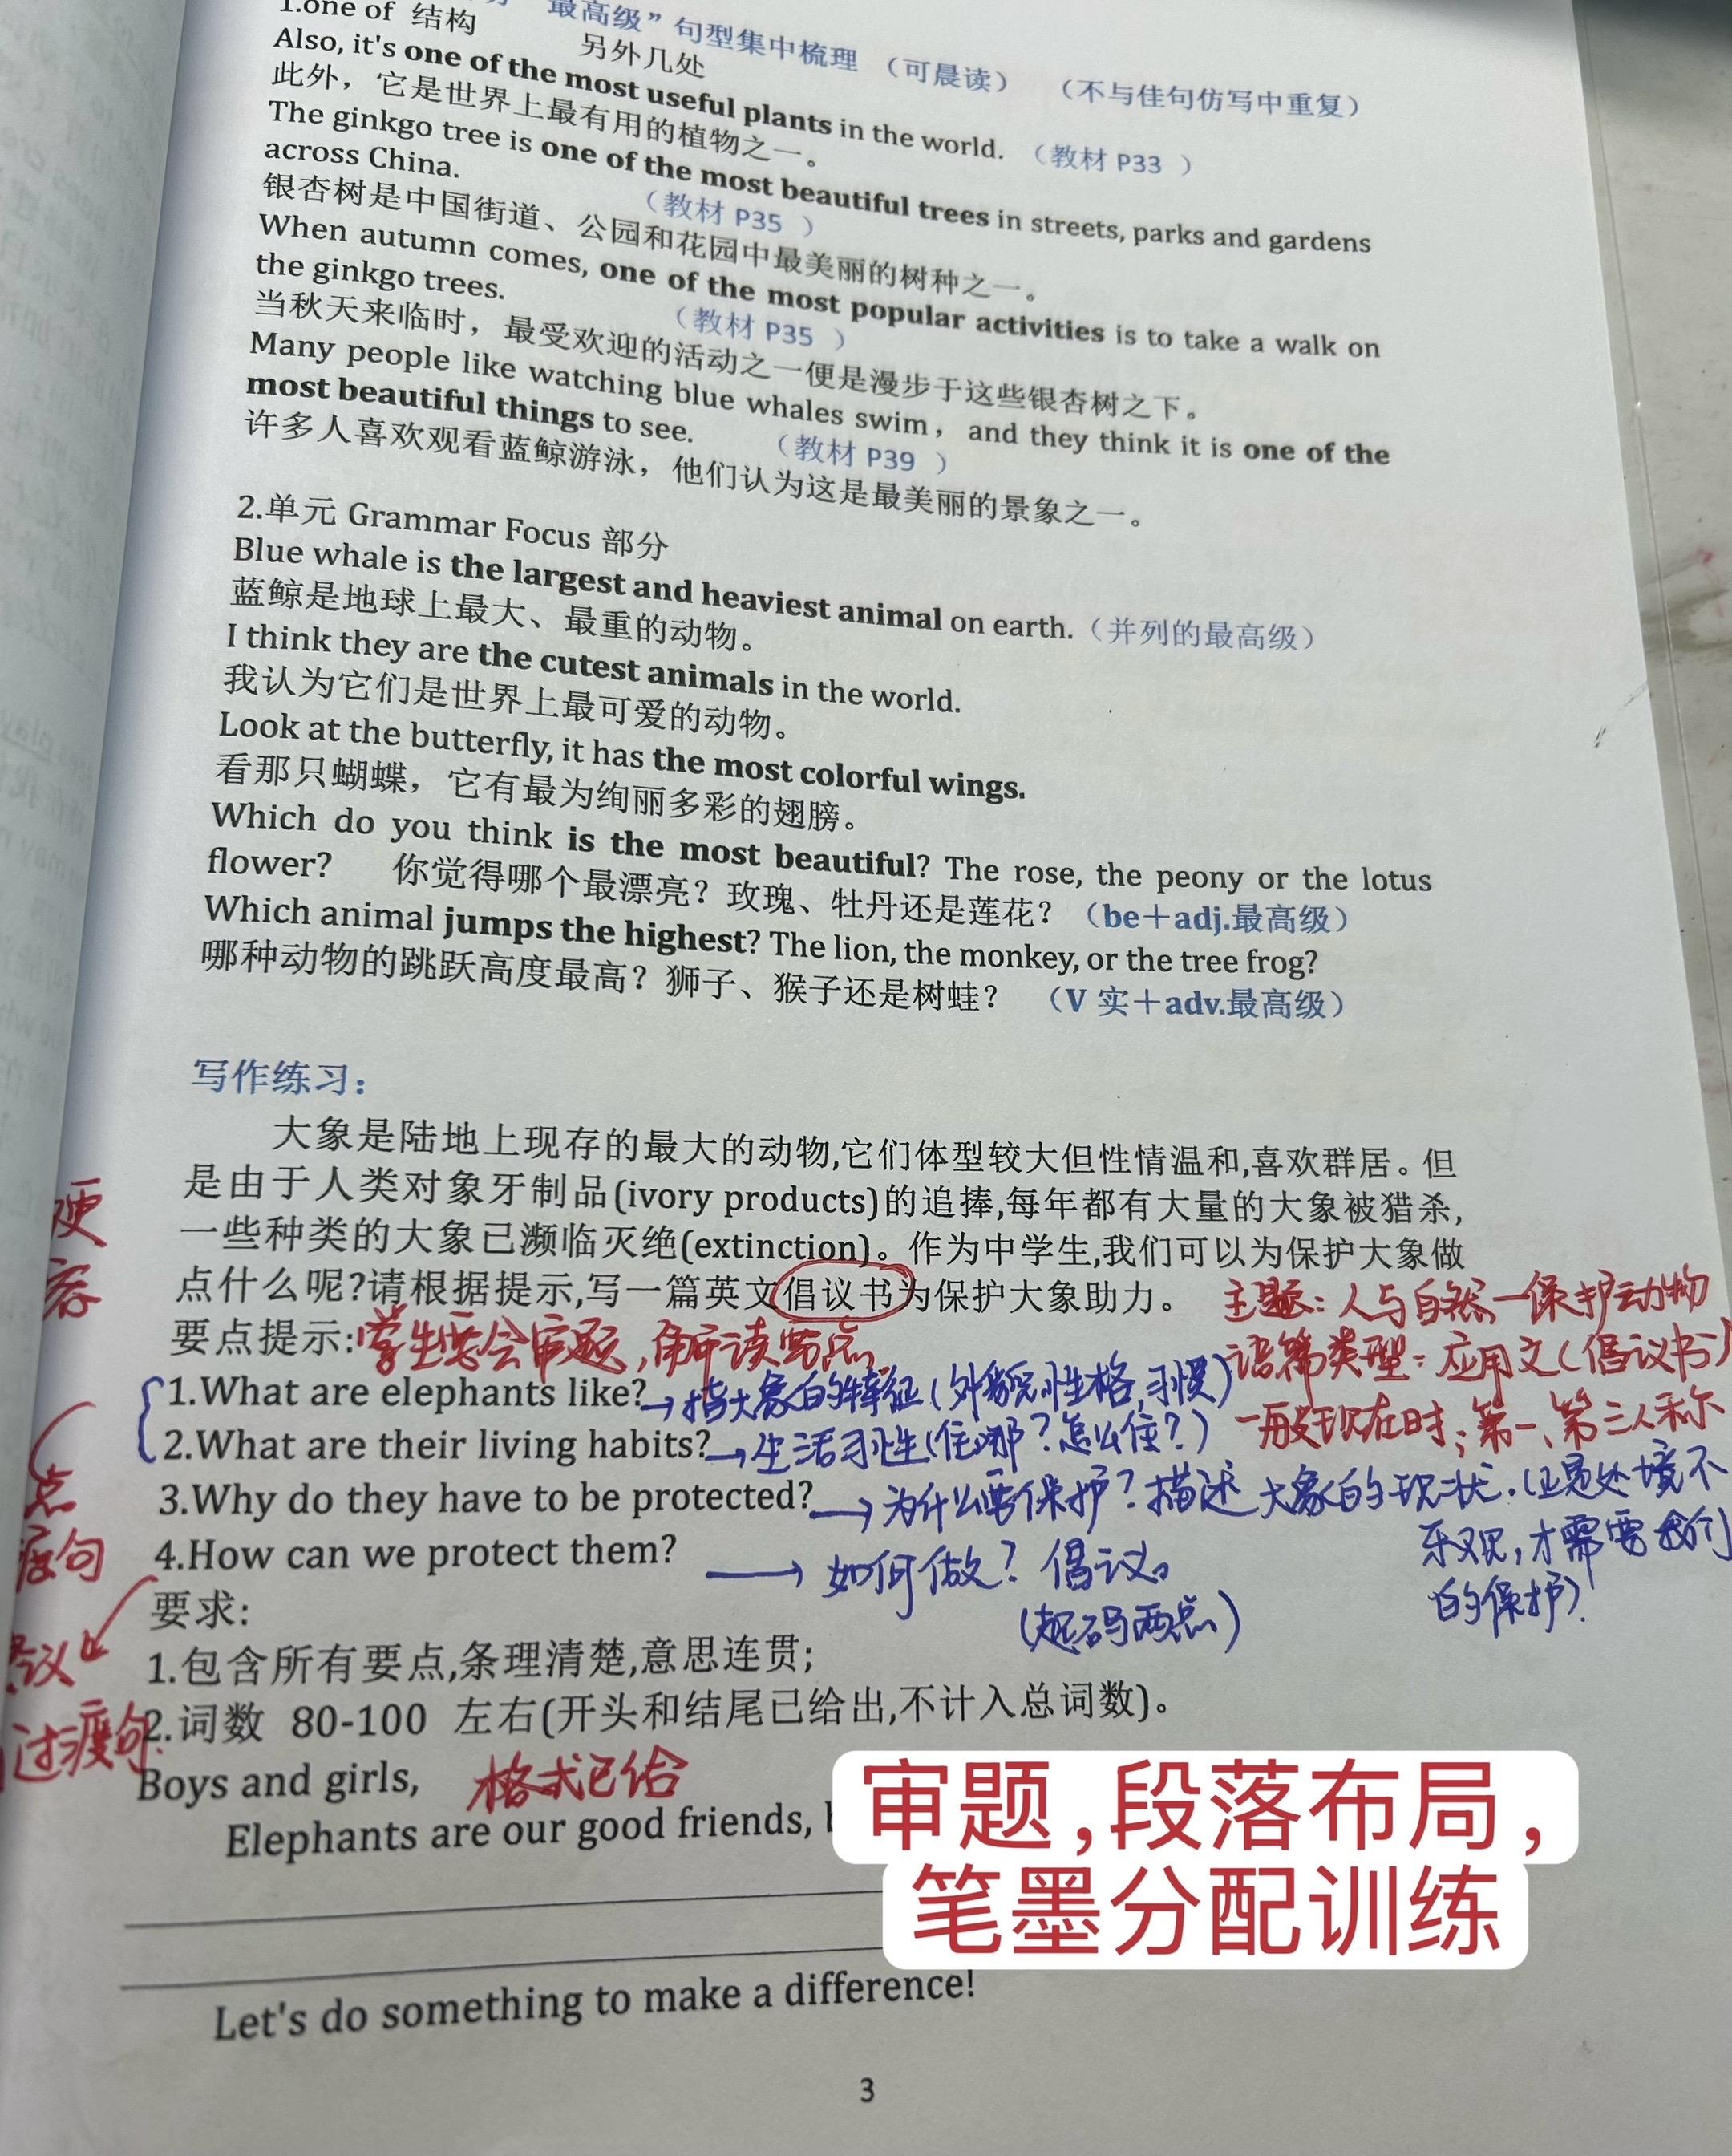 最高级”句型集中梳理 （可晨读） （不与佳句仿写中重复）
1.one of 结构 另外几处
Also, it's one of the most useful plants in the world. （教材 P33 ）
此外，它是世界上最有用的植物之一。
The ginkgo tree is one of the most beautiful trees in streets, parks and gardens
across China. （教材 P35 ）
银杏树是中国街道、公园和花园中最美丽的树种之一。
When autumn comes, one of the most popular activities is to take a walk on
the ginkgo trees. （教材 P35 ）
当秋天来临时，最受欢迎的活动之一便是漫步于这些银杏树之下。
Many people like watching blue whales swim，and they think it is one of the
most beautiful things to see. （教材 P39 ）
许多人喜欢观看蓝鲸游泳，他们认为这是最美丽的景象之一。
2.单元 Grammar Focus 部分
Blue whale is the largest and heaviest animal on earth.（并列的最高级）
蓝鲸是地球上最大、最重的动物。
I think they are the cutest animals in the world.
我认为它们是世界上最可爱的动物。
Look at the butterfly, it has the most colorful wings.
看那只蝴蝶，它有最为绚丽多彩的翅膀。
Which do you think is the most beautiful? The rose, the peony or the lotus
flower? 你觉得哪个最漂亮？玫瑰、牡丹还是莲花？（be＋adj.最高级）
Which animal jumps the highest? The lion, the monkey, or the tree frog?
哪种动物的跳跃高度最高？狮子、猴子还是树蛙？ （V 实＋adv.最高级）
写作练习：
大象是陆地上现存的最大的动物,它们体型较大但性情温和,喜欢群居。但
是由于人类对象牙制品(ivory products)的追捧,每年都有大量的大象被猎杀,
一些种类的大象已濒临灭绝(extinction)。作为中学生,我们可以为保护大象做
点什么呢?请根据提示,写一篇英文倡议书为保护大象助力。
主题：人与自然—保护动物
要点提示:学生要会审题，解读要点
语篇类型：应用文（倡议书）
1.What are elephants like?→指大象的特征（外貌，性格，习惯）
一般现在时；第一、第三人称
2.What are their living habits?→生活习性（住哪？怎么住？）
3.Why do they have to be protected?→为什么要保护？描述大象的现状.（正是处境不
乐观，才需要我们
的保护）.
4.How can we protect them? → 如何做？倡议。
（起码两点）
要求:
1.包含所有要点,条理清楚,意思连贯;
2.词数 80-100 左右(开头和结尾已给出,不计入总词数)。
过渡句
Boys and girls, 格式已给
Elephants are our good friends,
审题,段落布局，
笔墨分配训练
Let's do something to make a difference!
3